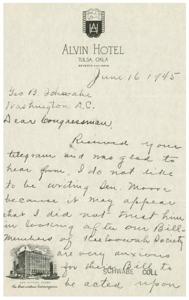 ALVIN HOTEL
TULSA, OKLA
June 16 1945
Geo B. Schwabe
Washington D.C.
Dear Congressman
Received your
telegram and was glad to
hear from. I do not like
to be writing Sen. Moore
because it may appear
that I did not trust him
in looking after our Bill-
Members of Keetoowah Society
are very anxious
for their Bill to
SCHWABE COLL
be acted upon